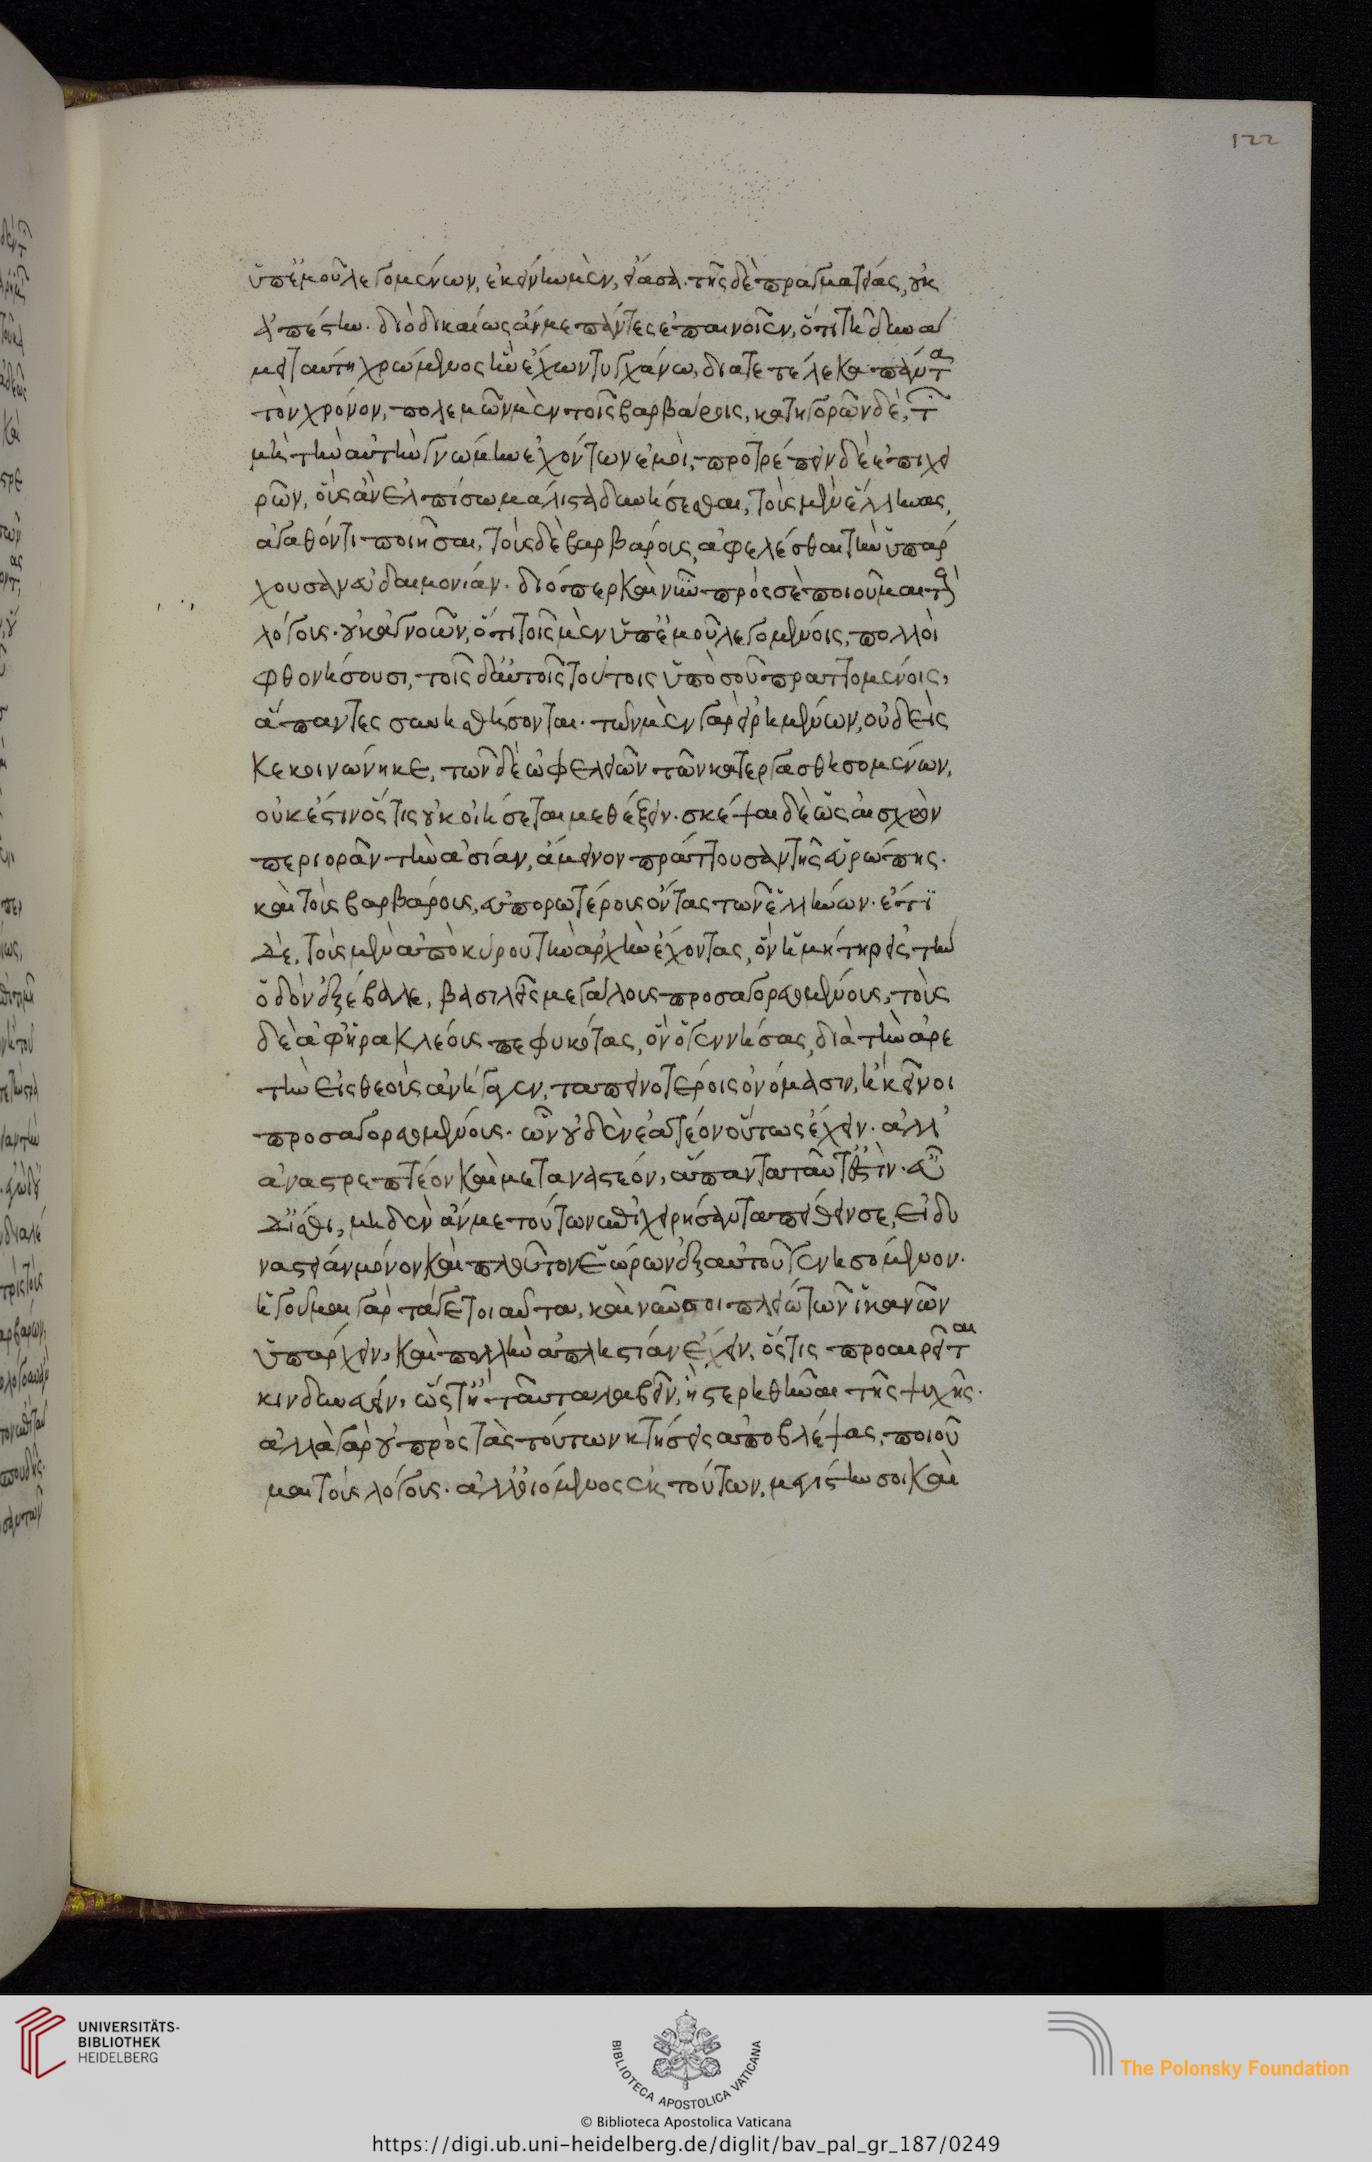 122
ὑπ' ἐμοῦ λεγομένων, ἐκείνων μὲν, εἴασα. τῆς δὲ πραγματείας, οὐκ
ἀπέστην. διὸ δικαίως ἄν με πάντες ἐπαινοῖεν, ὅτι τῇ δυνά
μει ταύτῃ χρώμενος ἣν ἔχων τυγχάνω, διατετέλεκα πάντα
τὸν χρόνον, πολεμῶν μὲν τοῖς βαρβάροις, κατηγορῶν δὲ, τῶν
μὴ τὴν αὐτὴν γνώμην ἐχόντων ἐμοὶ, προτρέπειν δὲ ἐπιχει
ρῶν, οὓς ἂν ἐλπίσω μάλιστα δυνήσεσθαι, τοὺς μὲν ἕλληνας,
ἀγαθόν τι ποιῆσαι, τοὺς δὲ βαρβάρους, ἀφελέσθαι τὴν ὑπάρ
χουσαν εὐδαιμονίαν. διόπερ καὶ νῦν πρὸς σὲ ποιοῦμαι τοὺς
λόγους. οὐκ ἀγνοῶν, ὅτι τοῖς μὲν ὑπ' ἐμοῦ λεγομένοις, πολλοὶ
φθονήσουσι, τοῖς δ' αὐτοῖς τούτοις ὑπὸ σοῦ πραττομένοις,
ἅπαντες συνησθήσονται. τῶν μὲν γὰρ εἰρημένων, οὐδεὶς
κεκοινώνηκε, τῶν δὲ ὠφελειῶν τῶν κατεργασθησομένων,
οὐκ ἔστιν ὅστις οὐκ οἰήσεται μεθέξειν. σκέψαι δὲ ὡς αἰσχρὸν
περιορᾶν τὴν ἀσίαν, ἄμεινον πράττουσαν τῆς εὐρώπης.
καὶ τοὺς βαρβάρους, εὐπορωτέρους ὄντας τῶν ἑλλήνων. ἔτι
δὲ, τοὺς μὲν ἀπὸ κύρου τὴν ἀρχὴν ἔχοντας, ὃν ἡ μήτηρ εἰς τὴν
ὁδὸν ἐξέβαλε, βασιλεῖς μεγάλους προσαγορευομένους, τοὺς
δὲ ἀφ' ἡρακλέους πεφυκότας, ὃν ὁ γεννήσας, διὰ τὴν ἀρε
τὴν εἰς θεοὺς ἀνήγαγεν, ταπεινοτέροις ὀνόμασιν, ἢ κεῖνοι
προσαγορευομένους. ὧν οὐδὲν ἐατέον οὕτως ἔχειν. ἀλλ'
ἀναστρεπτέον καὶ μεταστατέον, ἅπαντα ταῦτ' ἐστίν. εὖ
δ' ἴσθι, μηδὲν ἄν με τούτων ἐπιχειρήσαντα πείθειν σε, εἰ δυ
ναστείαν μόνον καὶ πλοῦτον ἑώρων ἐξ αὐτοῦ γενησόμενον.
ἡγοῦμαι γὰρ τά γε τοιαῦτα, καὶ νῦν σοι πλείω τῶν ἱκανῶν
ὑπάρχειν, καὶ πολλὴν ἀπληστίαν ἔχειν, ὅστις προαιρεῖται
κινδυνεύειν, ὥστ' ἢ ταῦτα λαβεῖν, ἢ στερηθῆναι τῆς ψυχῆς.
ἀλλὰ γὰρ οὐ πρὸς τὰς τούτων κτήσεις ἀποβλέψας, ποιοῦ
μαι τοὺς λόγους. ἀλλ' οἰόμενος ἐκ τούτων, μεγίστην σοι καὶ
UNIVERSITÄTS-
BIBLIOTHEK
HEIDELBERG
BIBLIOTECA APOSTOLICA VATICANA
The Polonsky Foundation
© Biblioteca Apostolica Vaticana
https://digi.ub.uni-heidelberg.de/diglit/bav_pal_gr_187/0249